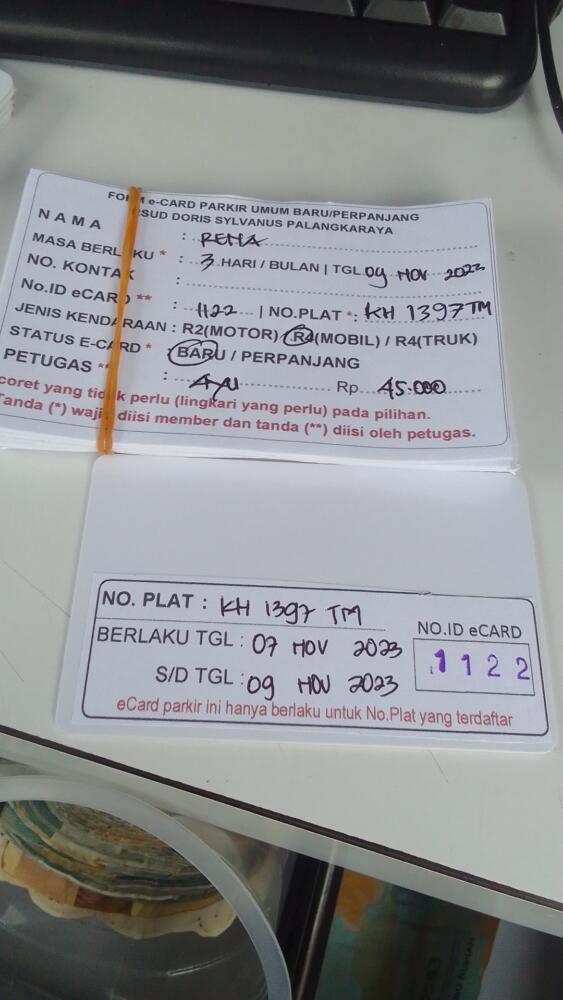 FORM e-CARD PARKIR UMUM BARU/PERPANJANG
RSUD DORIS SYLVANUS PALANGKARAYA
NAMA : REHA
MASA BERLAKU * : 3 HARI / BULAN | TGL 09 NOV 2023
NO. KONTAK :
No.ID eCARD ** : 1122 | NO.PLAT *: KH 1397 TM
JENIS KENDARAAN : R2(MOTOR) / R4(MOBIL) / R4(TRUK)
STATUS E-CARD * : BARU / PERPANJANG
PETUGAS ** : AYU Rp 45.000
coret yang tidak perlu (lingkari yang perlu) pada pilihan.
Tanda (*) wajib diisi member dan tanda (**) diisi oleh petugas.
NO. PLAT : KH 1397 TM
BERLAKU TGL : 07 NOV 2023
S/D TGL : 09 NOV 2023
NO.ID eCARD
1122
eCard parkir ini hanya berlaku untuk No.Plat yang terdaftar